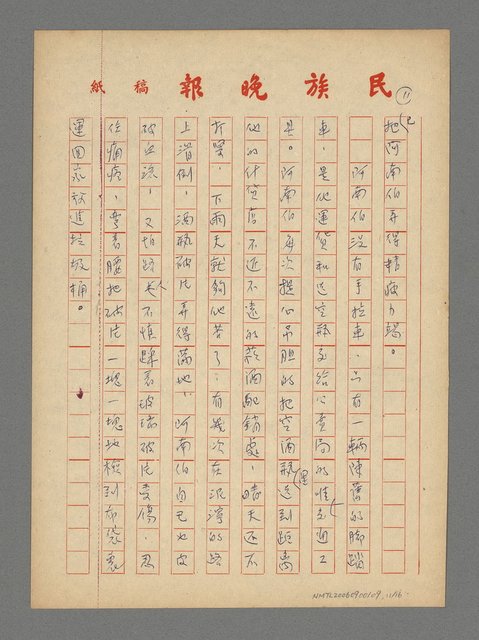 民族晚報 稿紙
11
把阿南伯弄得精疲力竭。
阿南伯沒有手拉車,只有一輛陳舊的脚踏
車,是他運貨和送空瓶交給公賣局的惟一交通工
具。阿南伯每次提心吊胆的把空酒瓶送到距離
他的什貨店不近不遠的菸酒配銷處,晴天還不
打緊,下雨天就夠他苦了;有幾次在泥濘的路
上滑倒,酒瓶破片弄得滿地,阿南伯自己也皮
破血流,又怕路人不慎踩着玻璃破片受傷,忍
住痛疼,彎着腰把破片一塊一塊地檢到布袋裏
運回家放進垃圾桶。
NMTL20060900109, 11/16